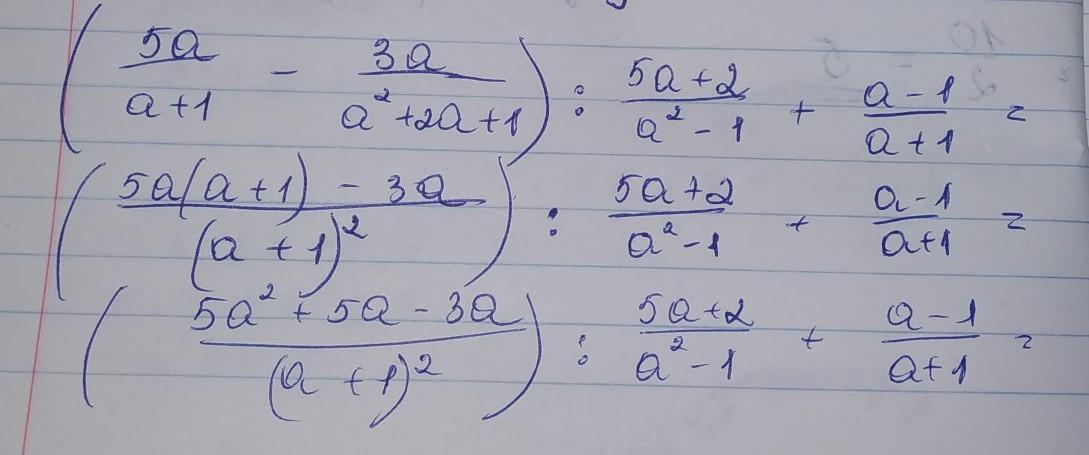 (5a/(a+1) - 3a/(a²+2a+1)) : (5a+2)/(a²-1) + (a-1)/(a+1) =
((5a(a+1) - 3a)/(a+1)²) : (5a+2)/(a²-1) + (a-1)/(a+1) =
((5a²+5a-3a)/(a+1)²) : (5a+2)/(a²-1) + (a-1)/(a+1) =